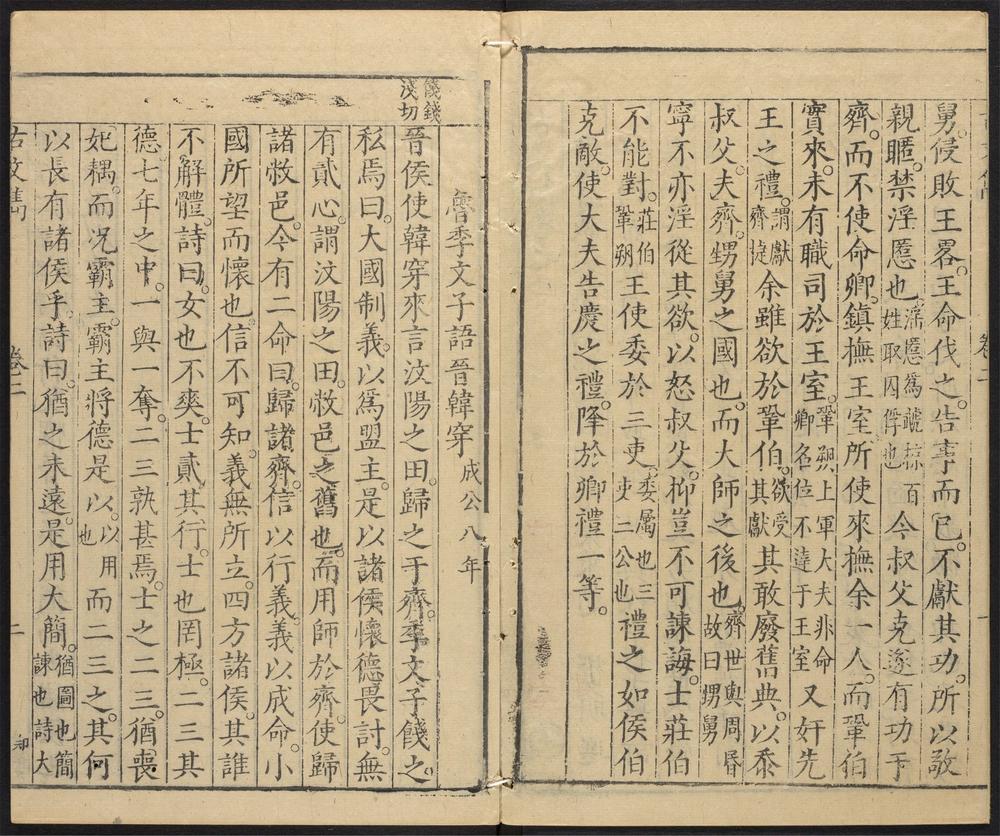 舅。侵敗王畧。王命伐之。告事而已。不獻其功。所以敬
親暱。禁淫慝也。淫慝爲虢掠百姓取囚俘也今叔父克遂有功于
齊。而不使命卿。鎮撫王室。所使來撫余一人。而鞏伯
實來。未有職司於王室。鞏朔上軍大夫非命卿名位不達于王室又奸先
王之禮。謂獻齊捷余雖欲於鞏伯。欲受其獻其敢廢舊典。以忝
叔父。夫齊。甥舅之國也。而大師之後也。齊世與周昬故曰甥舅
寧不亦淫從其欲。以怒叔父。抑豈不可諫誨。士莊伯
不能對。莊伯鞏朔王使委於三吏。委屬也三吏三公也禮之如侯伯
克敵。使大夫告慶之禮。降於卿禮一等。
卷二
一
魯季文子語晉韓穿成公八年
餞錢淺切
晉侯使韓穿來言汶陽之田。歸之于齊。季文子餞之。
私焉。曰。大國制義。以爲盟主。是以諸侯懷德畏討。無
有貳心。謂汶陽之田。敝邑之舊也。而用師於齊。使歸
諸敝邑。今有二命。曰。歸諸齊。信以行義。義以成命。小
國所望而懷也。信不可知。義無所立。四方諸侯。其誰
不解體。詩曰。女也不爽。士貳其行。士也罔極。二三其
德。七年之中。一與一奪。二三孰甚焉。士之二三。猶喪
妃耦。而况霸主。霸主將德是以。以用也而二三之。其何
以長有諸侯乎。詩曰。猶之未遠。是用大簡。猶圖也簡諫也詩大
卷二
二